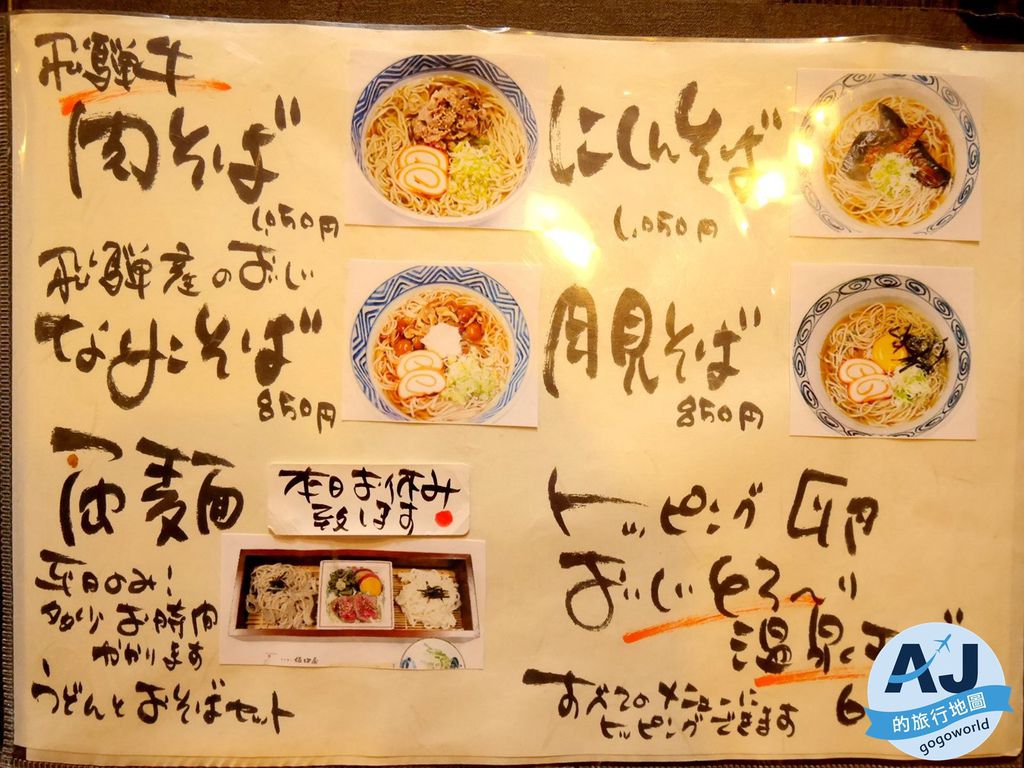 飛騨牛
肉そば
1,050円
飛騨産のおじ
なめこそば
850円
本日お休み
致します
平日のみ!
多少お時間
かかります
うどんとおそばセット
にしんそば
1,050円
月見そば
850円
トッピング 卵
とろろ
温泉
すべてのメニューに
トッピングできます
6
AJ
的旅行地圖
gogoworld